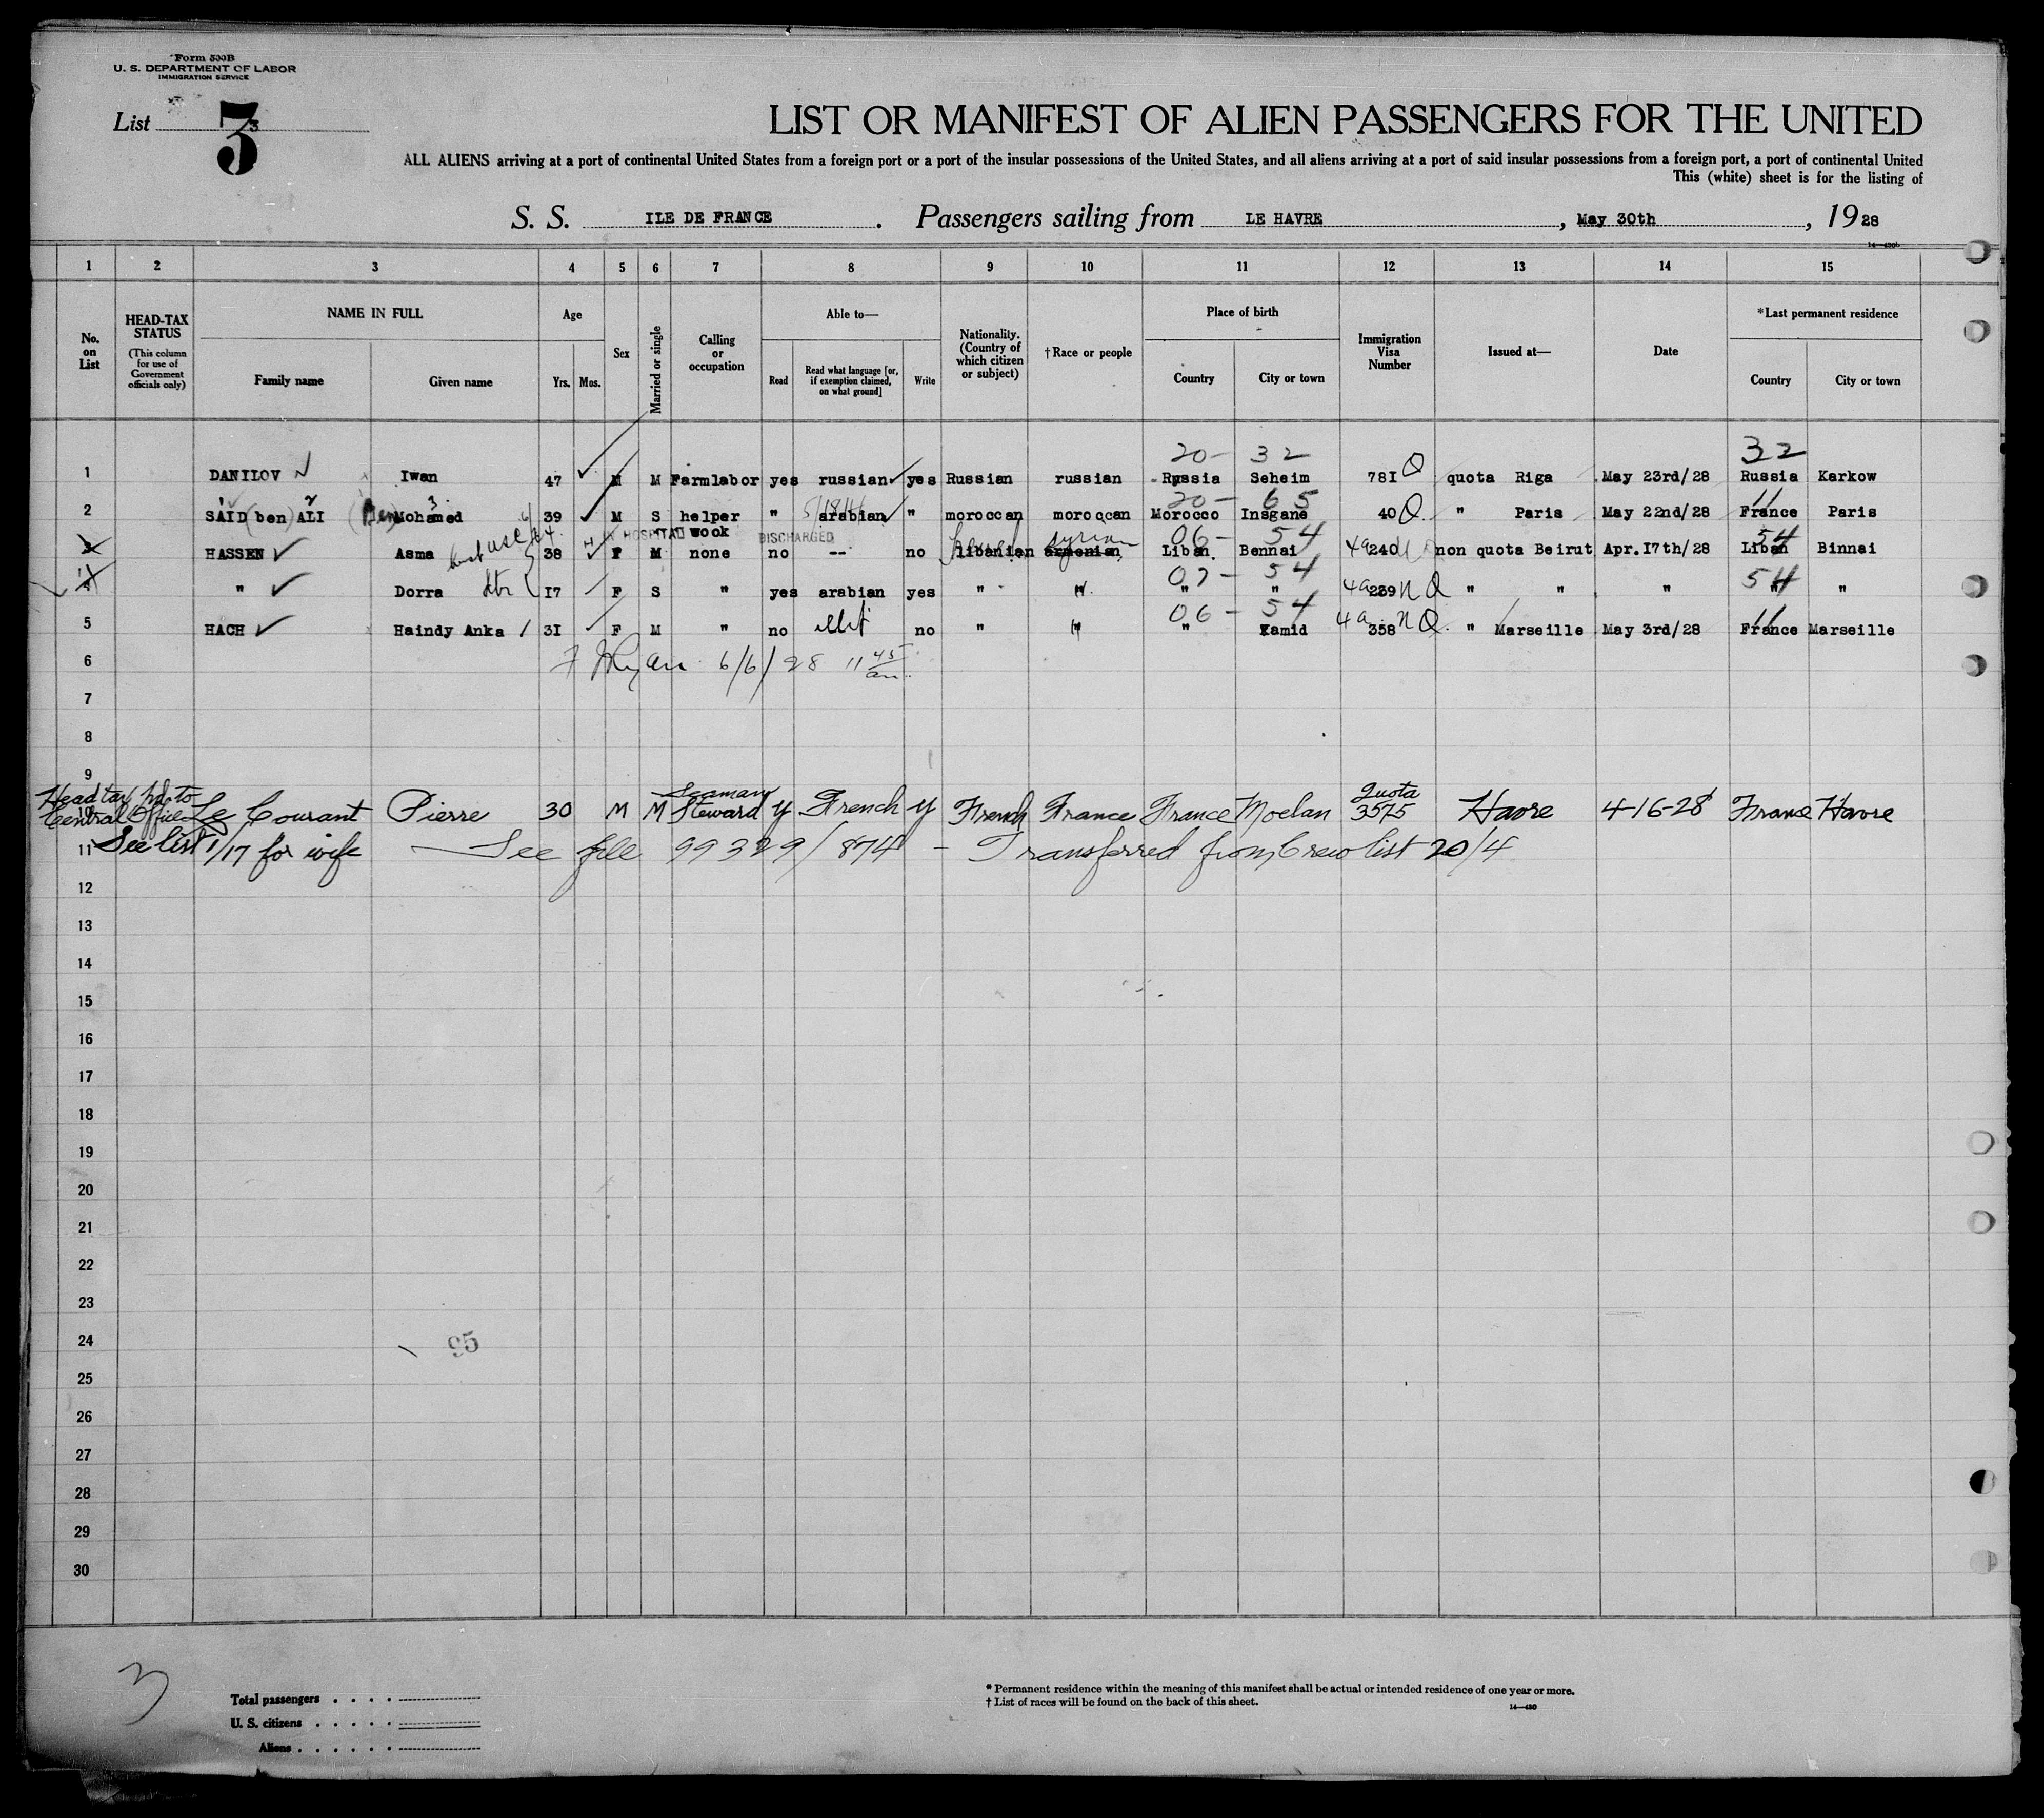 Form 500B
U. S. DEPARTMENT OF LABOR
IMMIGRATION SERVICE
List 3
3
LIST OR MANIFEST OF ALIEN PASSENGERS FOR THE UNITED
ALL ALIENS arriving at a port of continental United States from a foreign port or a port of the insular possessions of the United States, and all aliens arriving at a port of said insular possessions from a foreign port, a port of continental United
This (white) sheet is for the listing of
S. S. ILE DE FRANCE. Passengers sailing from LE HAVRE, May 30th, 1928
1 2 3 4 5 6 7 8 9 10 11 12 13 14 15
No. on List
HEAD-TAX STATUS
(This column for use of Government officials only)
NAME IN FULL
Family name Given name
Age
Yrs. Mos.
Sex
Married or single
Calling or occupation
Able to—
Read
Read what language [or, if exemption claimed, on what ground]
Write
Nationality. (Country of which citizen or subject)
†Race or people
Place of birth
Country City or town
Immigration Visa Number
Issued at—
Date
*Last permanent residence
Country City or town
20- 32 32
1 DANILOV Iwan 47 M M Farmlabor yes russian yes Russian russian Russia Seheim 781 Q quota Riga May 23rd/28 Russia Karkow
20- 65 11
2 SAID (ben) ALI Mohamed 39 M S helper " arabian " moroccan moroccan Morocco Insgane 40 Q. " Paris May 22nd/28 France Paris
IN HOSPITAL wook DISCHARGED syrian 06- 54 54
3 HASSEN Asma 38 F M none no -- no libanian armenian Liban. Bennai 4a 240 non quota Beirut Apr. 17th/28 Liban Binnai
07- 54 54
4 " Dorra 17 F S " yes arabian yes " " " " 4a 239 n Q " " " " "
06- 54 11
5 HACH Haindy Anka 31 F M " no illit no " " " Xamid 4a 358 n Q. " Marseille May 3rd/28 France Marseille
6 6/6/28 11 45 am
7
8
9
Head tax Seaman Quota
10 Central Office Le Courant Pierre 30 M M Steward y French y French France France Moelan 3575 Havre 4-16-28 France Havre
11 See list 1/17 for wife — See file 99329/874 - Transferred from Crew list 20/4
12
13
14
15
16
17
18
19
20
21
22
23
24 95
25
26
27
28
29
30
3
Total passengers
U. S. citizens
Aliens
* Permanent residence within the meaning of this manifest shall be actual or intended residence of one year or more.
† List of races will be found on the back of this sheet.